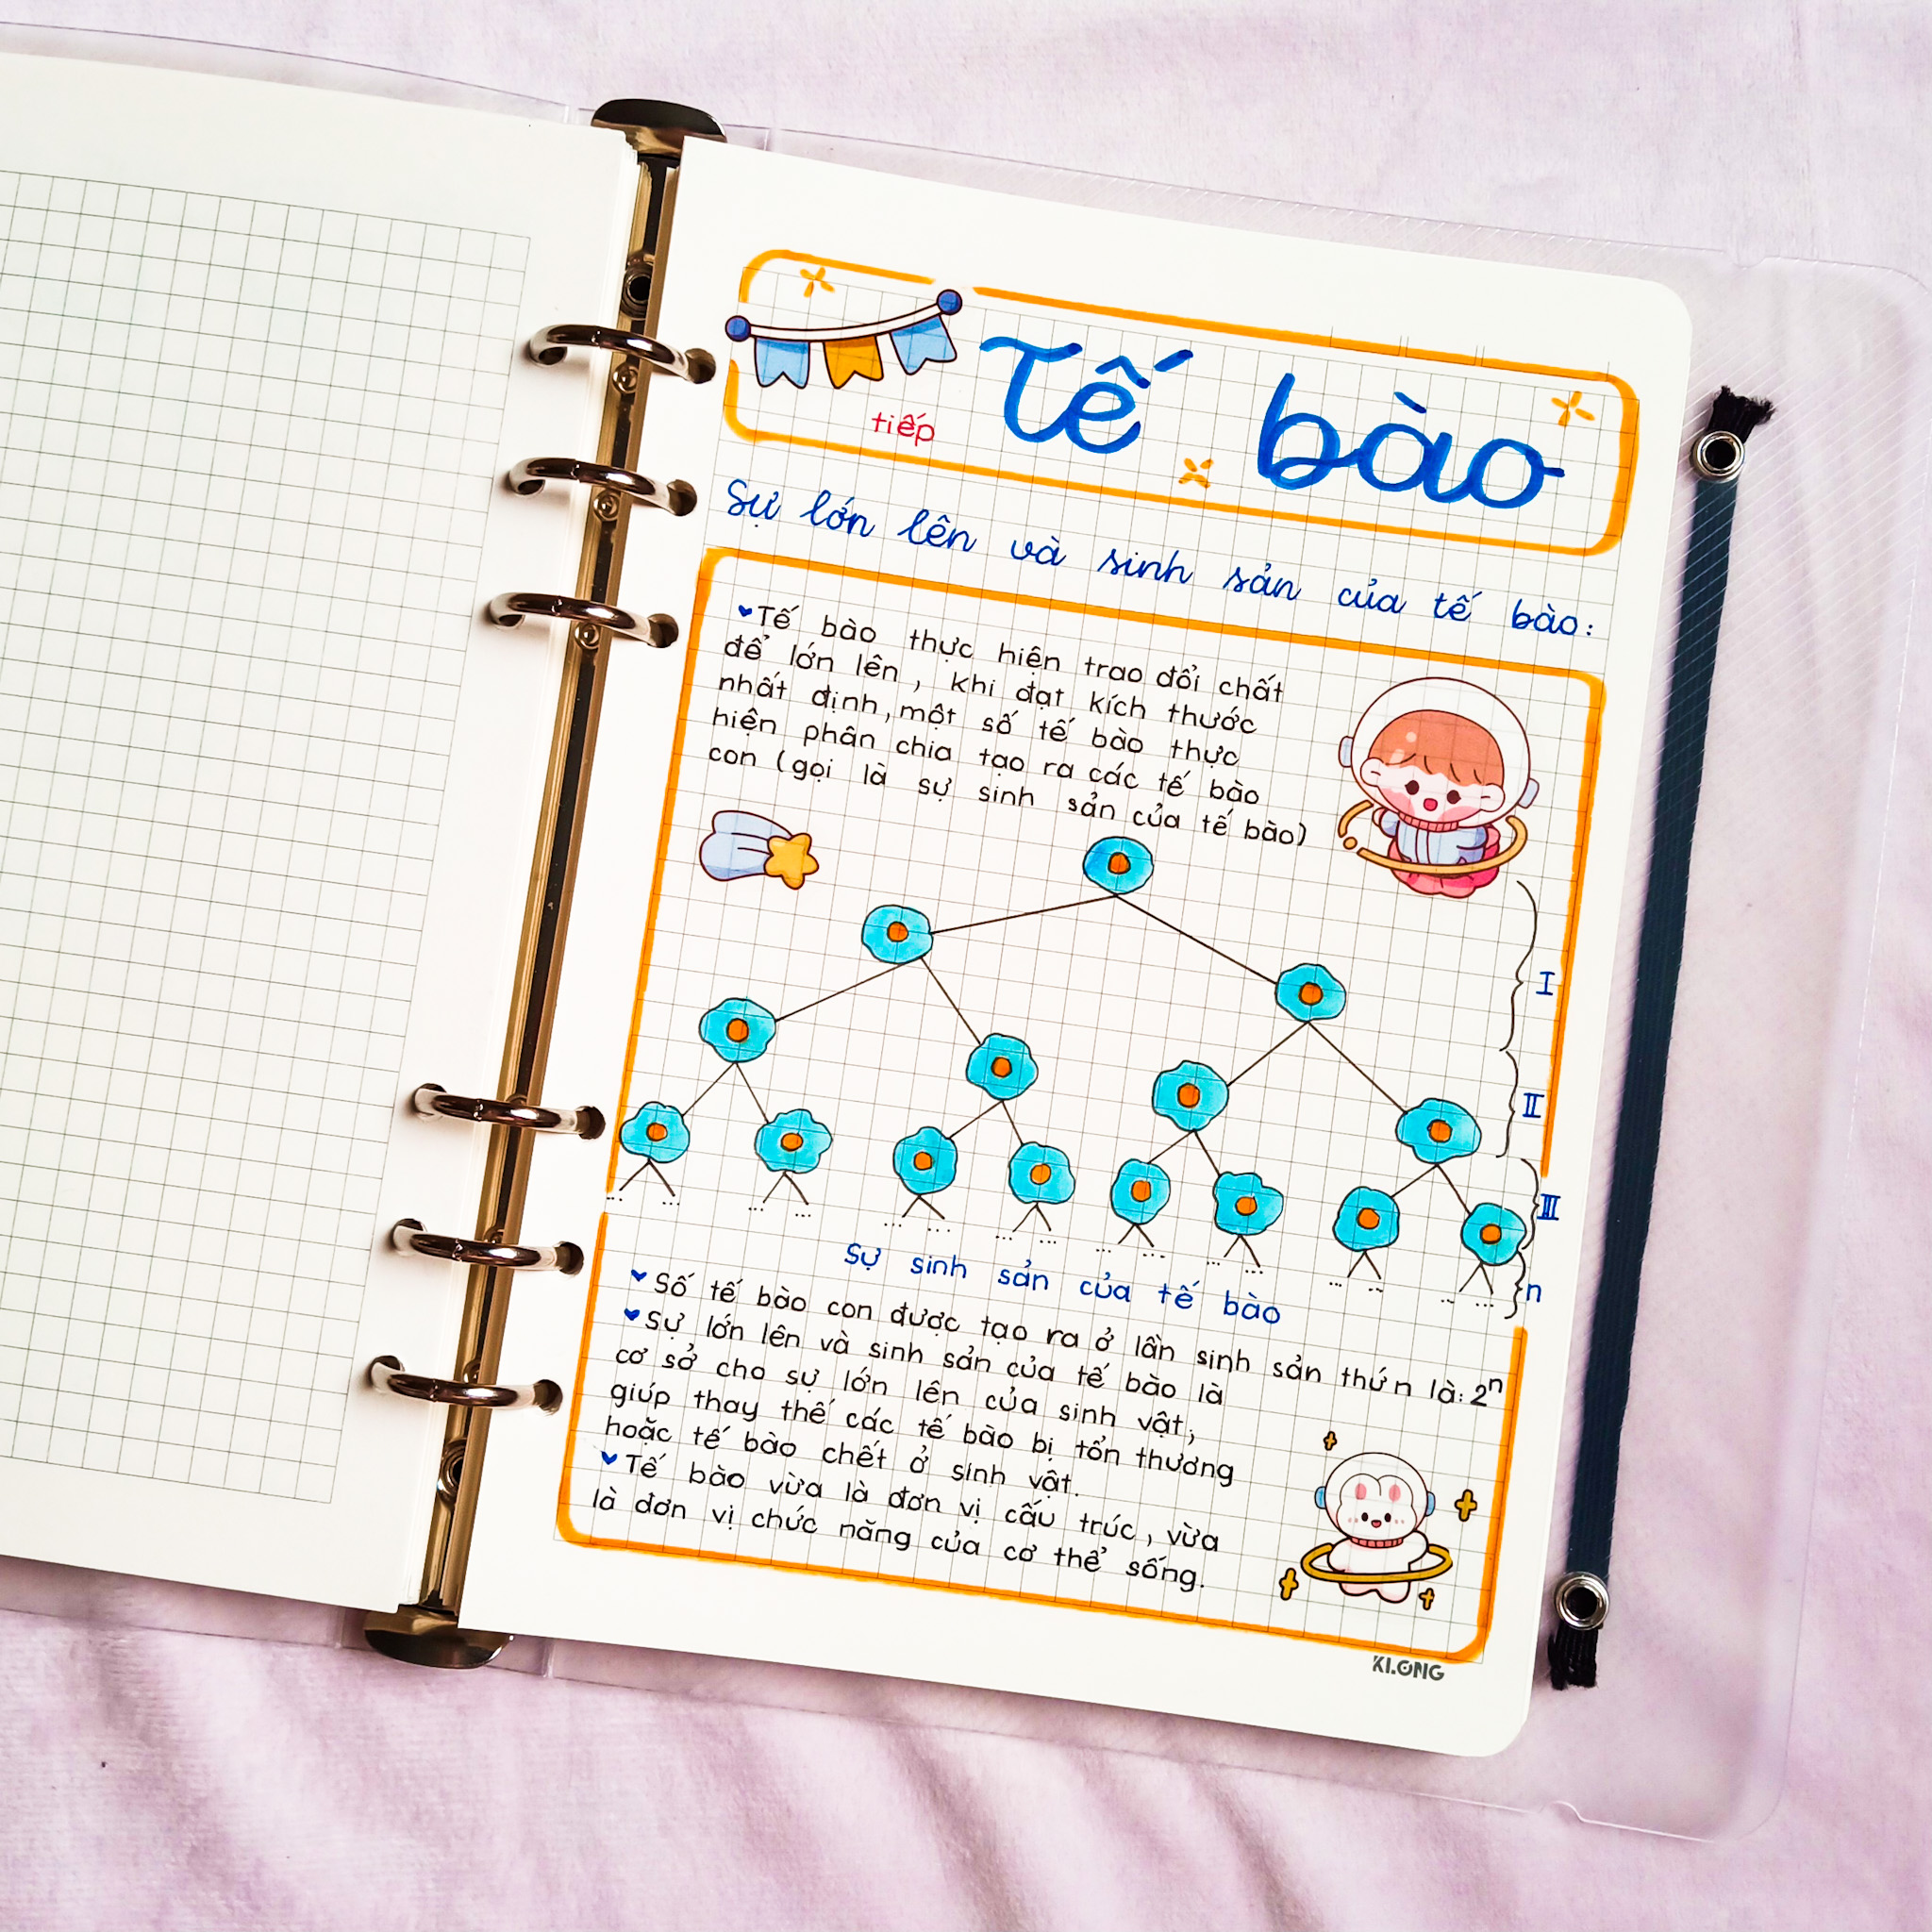 tiếp
Tế bào
Sự lớn lên và sinh sản của tế bào:
Tế bào thực hiện trao đổi chất
để lớn lên, khi đạt kích thước
nhất định, một số tế bào thực
hiện phân chia tạo ra các tế bào
con (gọi là sự sinh sản của tế bào)
I
II
III
n
... ... ... ... ... ... ... ... ... ... ... ... ... ... ... ...
Sự sinh sản của tế bào
Số tế bào con được tạo ra ở lần sinh sản thứ n là: 2ⁿ
Sự lớn lên và sinh sản của tế bào là
cơ sở cho sự lớn lên của sinh vật;
giúp thay thế các tế bào bị tổn thương
hoặc tế bào chết ở sinh vật.
Tế bào vừa là đơn vị cấu trúc, vừa
là đơn vị chức năng của cơ thể sống.
KLONG